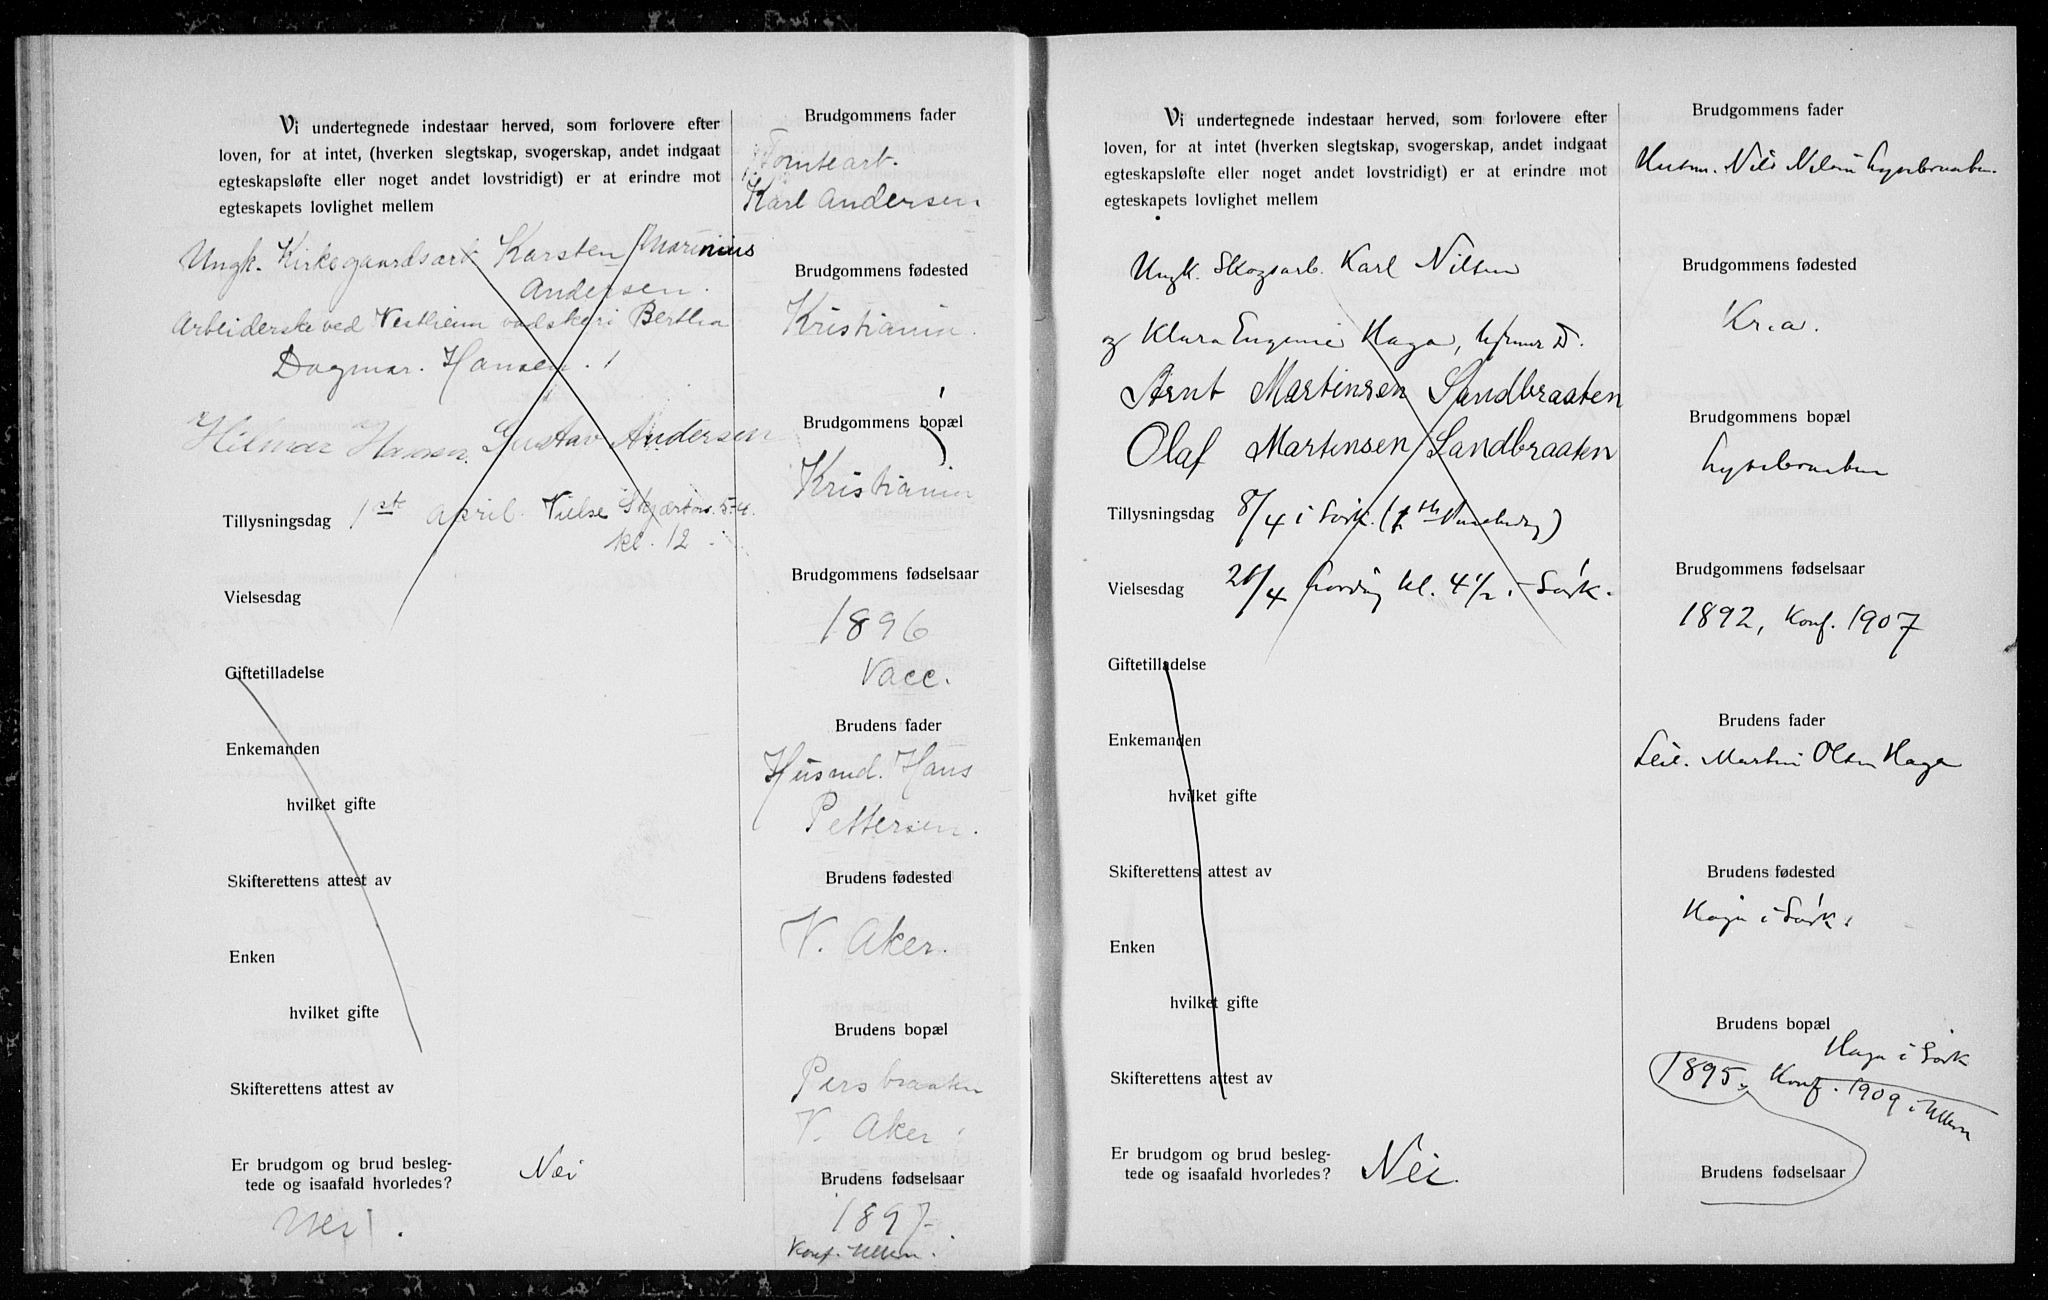 Vi undertegnede indestaar herved, som forlovere efter
loven, for at intet, (hverken slegtskap, svogerskap, andet indgaat
egteskapsløfte eller noget andet lovstridigt) er at erindre mot
egteskapets lovlighet mellem
Ungk. Kirkegaardsarb. Karsten Marinius
Andersen.
Arbeiderske ved Vestheim vadskeri Bertha
Dagmar. Hansen.
Hilmar Hansen. Gustav Andersen
Tillysningsdag 1ste april. Vielse Skjærtors. 5-4.
kl. 12
Vielsesdag
Giftetilladelse
Enkemanden
hvilket gifte
Skifterettens attest av
Enken
hvilket gifte
Skifterettens attest av
Er brudgom og brud besleg-
tede og isaafald hvorledes? Nei
Nei.
Brudgommens fader
Tomtearb.
Karl Andersen
Brudgommens fødested
Kristiania.
Brudgommens bopæl
Kristiania
Brudgommens fødselsaar
1896
Vacc.
Brudens fader
Husmd. Hans
Pettersen.
Brudens fødested
V. Aker.
Brudens bopæl
Persbraaten
V. Aker.
Brudens fødselsaar
1897
Konf. Ullern.
Vi undertegnede indestaar herved, som forlovere efter
loven, for at intet, (hverken slegtskap, svogerskap, andet indgaat
egteskapsløfte eller noget andet lovstridigt) er at erindre mot
egteskapets lovlighet mellem
Ungk. Skogsarb. Karl Nilsen
og Klara Eugenie Haga, hjemmev. D.
Arnt Martinsen Sandbraaten
Olaf Martinsen Sandbraaten
Tillysningsdag 8/4 i Sørk.
Vielsesdag 21/4 Lørdag kl. 4 1/2 i Sørk.
Giftetilladelse
Enkemanden
hvilket gifte
Skifterettens attest av
Enken
hvilket gifte
Skifterettens attest av
Er brudgom og brud besleg-
tede og isaafald hvorledes? Nei.
Brudgommens fader
Husm. Nils Nilsen Lysebraaten.
Brudgommens fødested
Kr.a.
Brudgommens bopæl
Lysebraaten
Brudgommens fødselsaar
1892, Konf. 1907
Brudens fader
Leil. Martin Olsen Haga
Brudens fødested
Haga i Sørk.
Brudens bopæl
Haga i Sørk
1895, Konf. 1909 i Ullern
Brudens fødselsaar